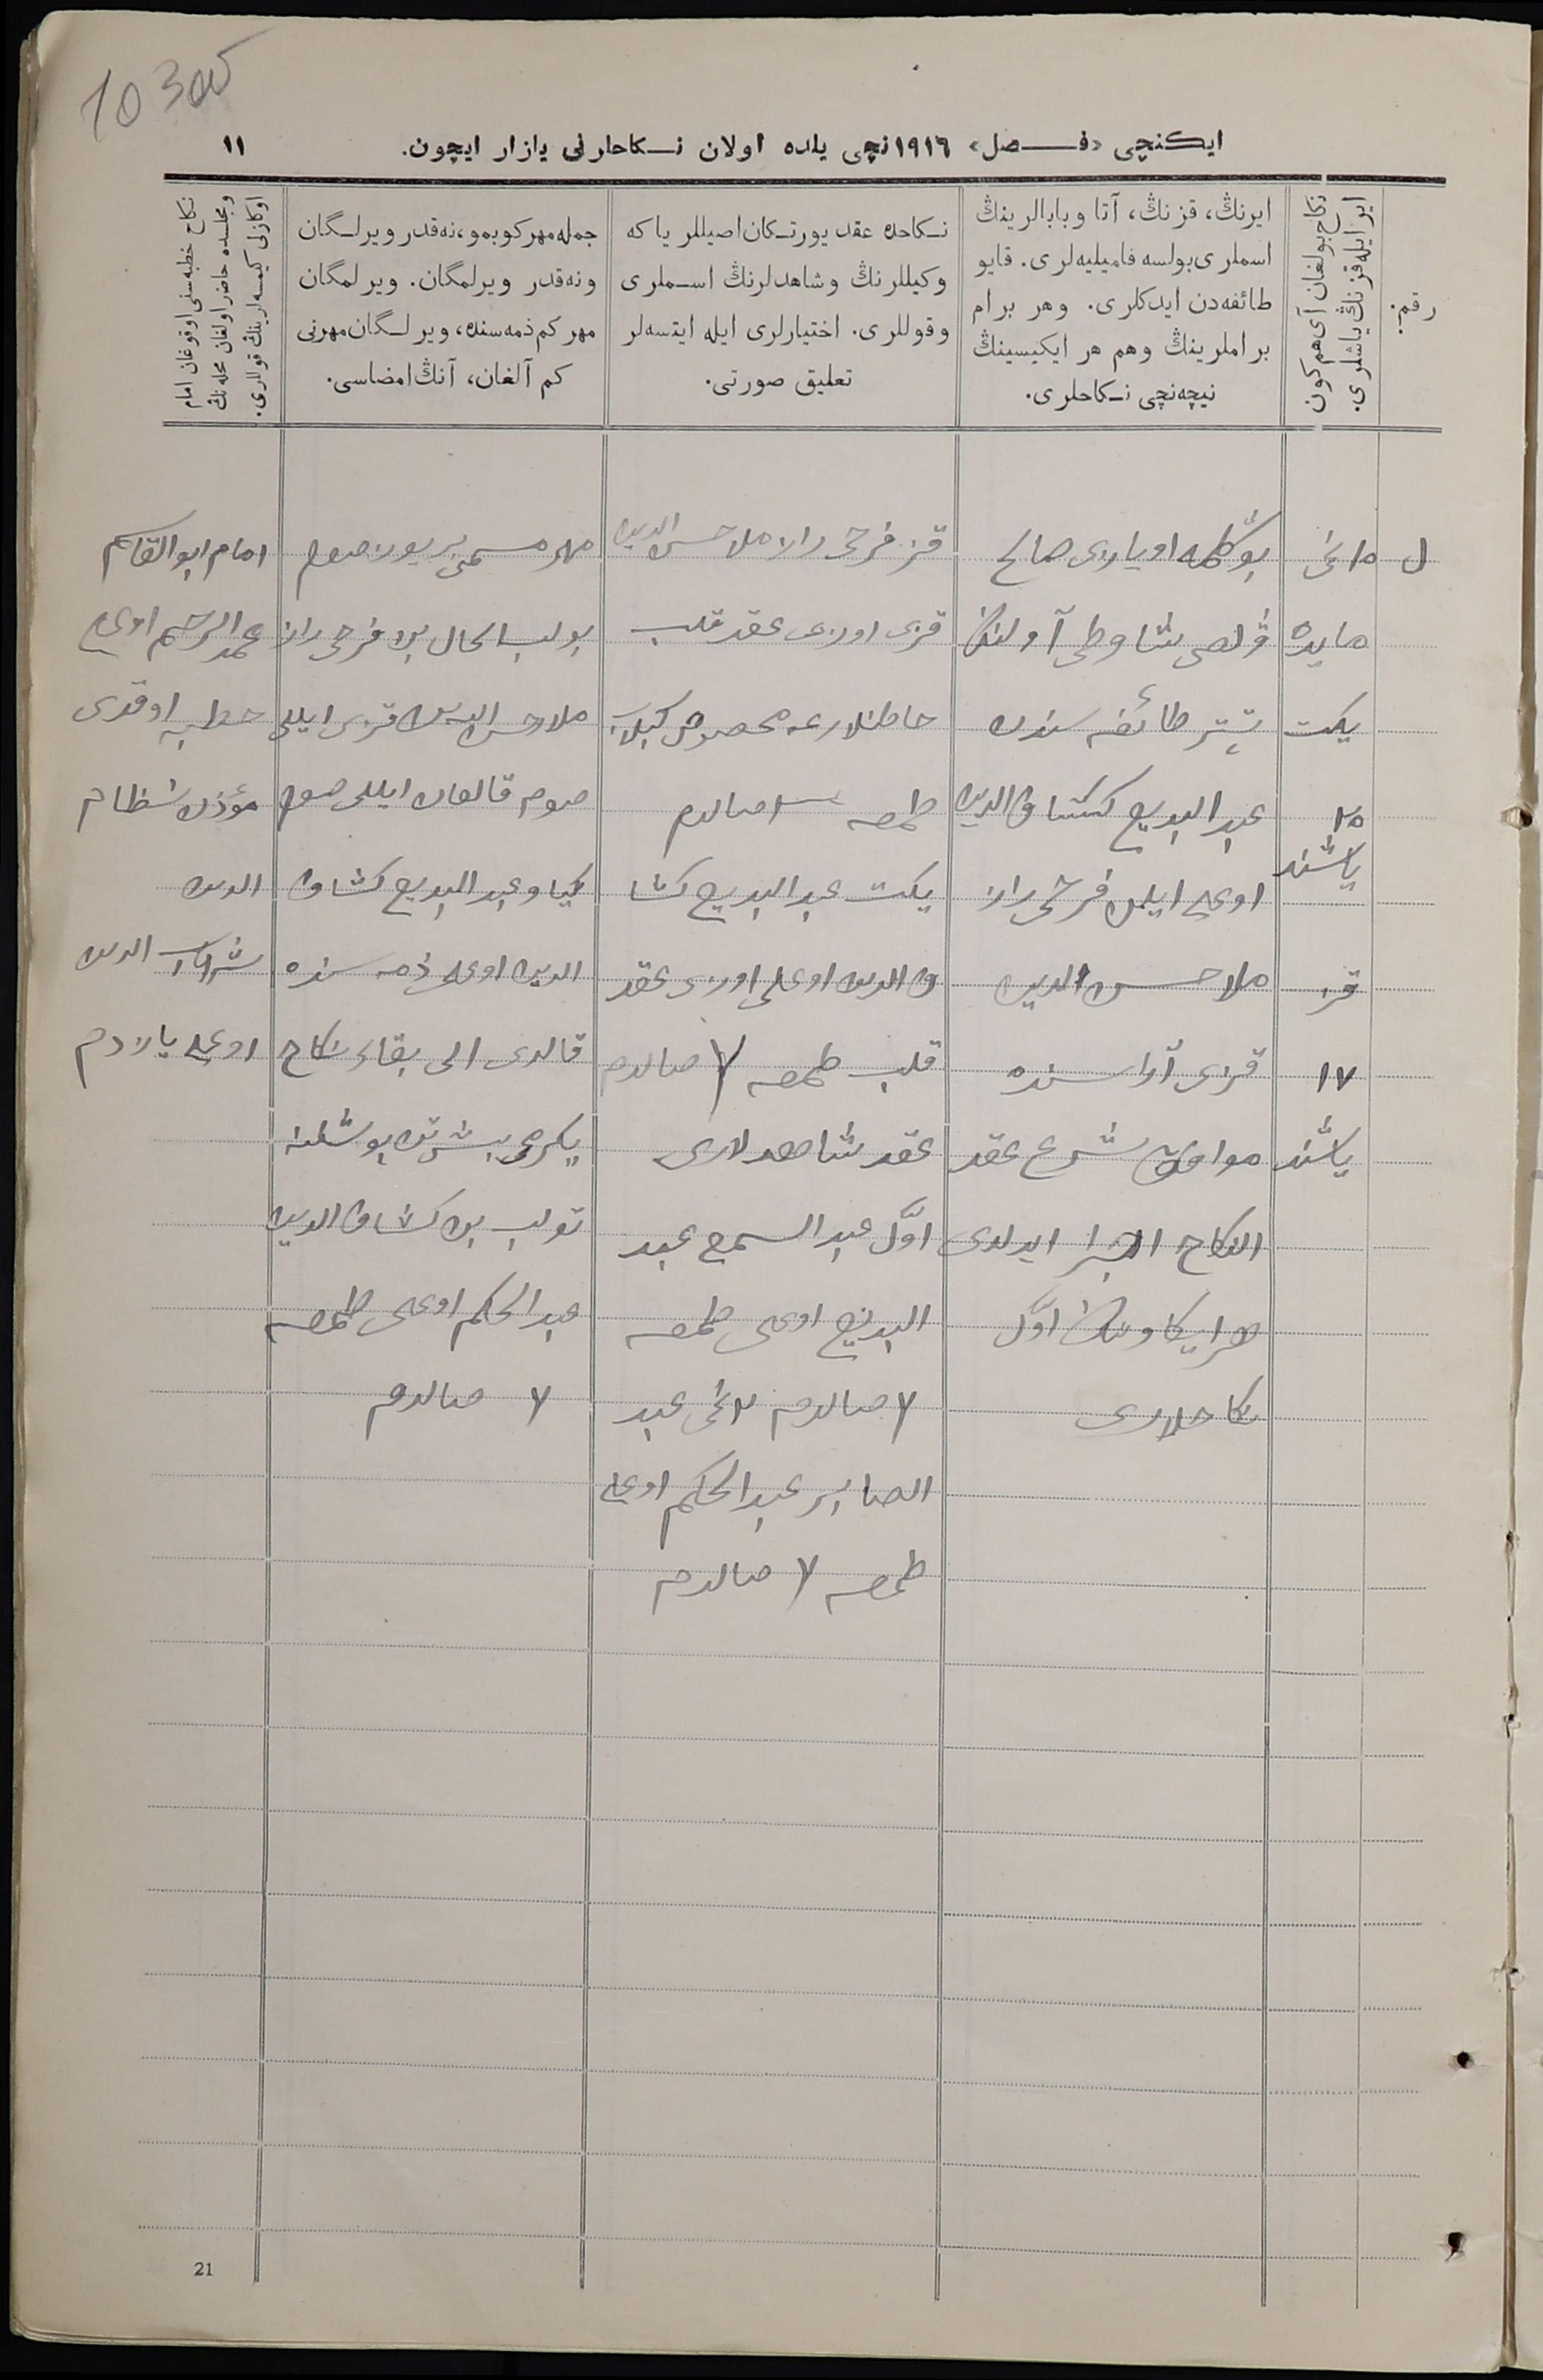 10 300
ایكنچی «فصل» ١٩١٦نچی یلده اولان نكاحلرنی یازار ایچون.
١١
رقم:
نكاح بولغان آی هم كون
ایر ایله قزنڭ یاشلری.
ایرنڭ، قزنڭ، آتا وبابالرینڭ
اسملری بولسه فامیلیه‌لری. قایو
طائفه‌دن ایدكلری. وهر برام
براملرینڭ وهم هر ایكیسینڭ
نیچه‌نچی نكاحلری.
نكاحده عقد یورتكان اصیللر یا كه
وكیللرنڭ وشاهدلرنڭ اسملری
وقوللری. اختیارلری ایله ایتسه‌لر
تعلیق صورتی.
جمله مهر كوبمو، نه‌قدر ویرلگان
ونه‌قدر ویرلمگان. ویرلمگان
مهر كم ذمه‌سنده، ویرلگان مهرنی
كم آلغان، آنڭ امضاسی.
نكاح خطبه‌سنی اوقوغان امام
ومجلسده حاضر اولغان محله‌نڭ
اوكازلی كیمسه‌لرینڭ قوللری.
مایده
یكت
٢٥
یاشنده
قز
١٧
یاشنده
صالح
طائفه سندن
عبد البدیع كشاف الدین
اوغلی ایلن
ملا حسن الدین
قزی آراسنده
موافق شرع عقد
النكاح اجرا ایدلدی
اوّل
نكاحلاری
قز ملا حسن الدین
قزی اوزی عقد قلب
طمغه صالدم
یكت عبد البدیع كشا
ف الدین اوغلی اوزی عقد
قلب طمغه ٧ صالدم
عقد شاهدلاری
اوّل عبد السمیع عبد
البدیع اوغلی طمغه
٧ صالدم ٢نچی عبد
الصابر عبد الحكیم اوغلی
طمغه ٧ صالدم
مهر مسمی بر یوز صوم
بولب الحال
ملا حسن الدین قزی ایللی
صوم قالغان ایللی صوم
كیاو عبد البدیع كشاف
الدین اوغلی ذمه سنده
قالدی الی بقاء نكاح
یكرمی بیش
كشاف الدین
عبد الحكیم اوغلی طمغه
٧ صالدم
امام ابو القاسم
عبد الرحیم اوغلی
خطبه اوقدی
مؤذن نظام
الدین
شهاب الدین
اوغلی یازدم
21